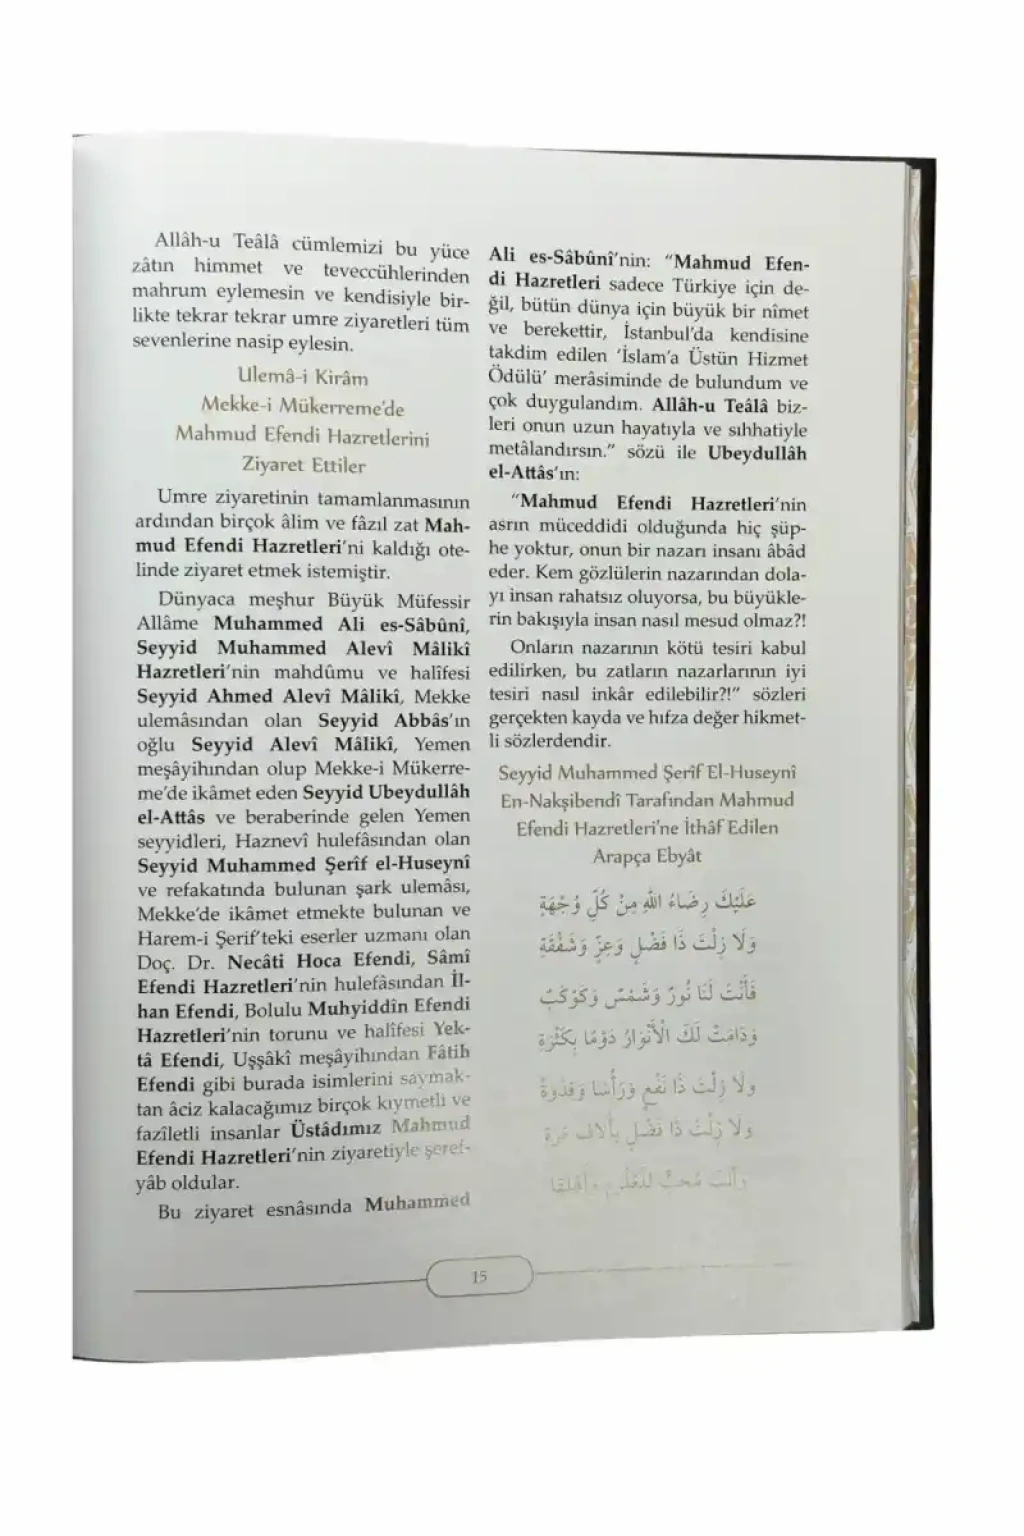 Allâh-u Teâlâ cümlemizi bu yüce
zâtın himmet ve teveccühlerinden
mahrum eylemesin ve kendisiyle bir-
likte tekrar tekrar umre ziyaretleri tüm
sevenlerine nasip eylesin.
Ulemâ-i Kirâm
Mekke-i Mükerreme'de
Mahmud Efendi Hazretlerini
Ziyaret Ettiler
Umre ziyaretinin tamamlanmasının
ardından birçok âlim ve fâzıl zat Mah-
mud Efendi Hazretleri'ni kaldığı ote-
linde ziyaret etmek istemiştir.
Dünyaca meşhur Büyük Müfessir
Allâme Muhammed Ali es-Sâbûnî,
Seyyid Muhammed Alevî Mâlikî
Hazretleri'nin mahdûmu ve halîfesi
Seyyid Ahmed Alevî Mâlikî, Mekke
ulemâsından olan Seyyid Abbâs'ın
oğlu Seyyid Alevî Mâlikî, Yemen
meşâyihından olup Mekke-i Mükerre-
me'de ikâmet eden Seyyid Ubeydullâh
el-Attâs ve beraberinde gelen Yemen
seyyidleri, Haznevî hulefâsından olan
Seyyid Muhammed Şerîf el-Huseynî
ve refakatında bulunan şark ulemâsı,
Mekke'de ikâmet etmekte bulunan ve
Harem-i Şerif'teki eserler uzmanı olan
Doç. Dr. Necâti Hoca Efendi, Sâmî
Efendi Hazretleri'nin hulefâsından İl-
han Efendi, Bolulu Muhyiddîn Efendi
Hazretleri'nin torunu ve halîfesi Yek-
tâ Efendi, Uşşâkî meşâyihından Fâtih
Efendi gibi burada isimlerini saymak-
tan âciz kalacağımız birçok kıymetli ve
fazîletli insanlar Üstâdımız Mahmud
Efendi Hazretleri'nin ziyaretiyle şeref-
yâb oldular.
Bu ziyaret esnâsında Muhammed
Ali es-Sâbûnî'nin: "Mahmud Efen-
di Hazretleri sadece Türkiye için de-
ğil, bütün dünya için büyük bir nîmet
ve berekettir, İstanbul'da kendisine
takdim edilen 'İslam'a Üstün Hizmet
Ödülü' merâsiminde de bulundum ve
çok duygulandım. Allâh-u Teâlâ biz-
leri onun uzun hayatıyla ve sıhhatiyle
metâlandırsın." sözü ile Ubeydullâh
el-Attâs'ın:
"Mahmud Efendi Hazretleri'nin
asrın müceddidi olduğunda hiç şüp-
he yoktur, onun bir nazarı insanı âbâd
eder. Kem gözlülerin nazarından dola-
yı insan rahatsız oluyorsa, bu büyükle-
rin bakışıyla insan nasıl mesud olmaz?!
Onların nazarının kötü tesiri kabul
edilirken, bu zatların nazarlarının iyi
tesiri nasıl inkâr edilebilir?!" sözleri
gerçekten kayda ve hıfza değer hikmet-
li sözlerdendir.
Seyyid Muhammed Şerîf El-Huseynî
En-Nakşibendî Tarafından Mahmud
Efendi Hazretleri'ne İthâf Edilen
Arapça Ebyât
عَلَيْكَ رِضَاءُ اللهِ مِنْ كُلِّ وُجْهَةٍ
وَلَا زِلْتَ ذَا فَضْلٍ وَعِزٍّ وَشَفْقَةٍ
فَأَنْتَ لَنَا نُورٌ وَشَمْسٌ وَكَوْكَبٌ
وَدَامَتْ لَكَ الْأَنْوَارُ دَوْمًا بِكَثْرَةٍ
وَلَا زِلْتَ ذَا نَفْعٍ وَرَأْسًا وَقُدْوَةً
وَلَا زِلْتَ ذَا فَضْلٍ بِآلَافِ مَرَّةٍ
وَأَنْتَ مُحِبٌّ لِلْعُلُومِ وَأَهْلِهَا
15